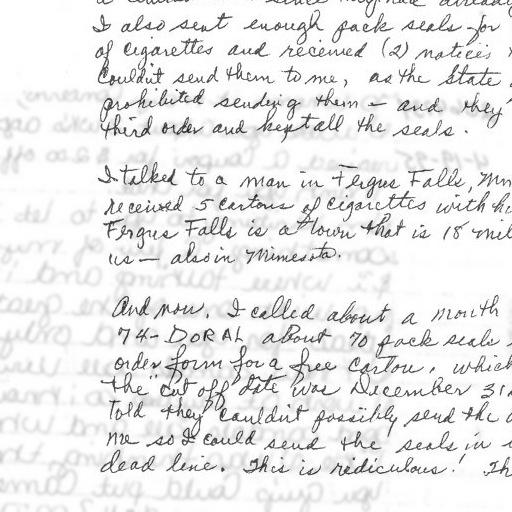 I also sent enough pack seals for
of cigarettes and received (2) notices
couldn't send them to me, as the State
prohibited sending them – and they
third order and kept all the seals.
I talked to a man in Fergus Falls, Mn
received 5 cartons of cigarettes with
Fergus Falls is a town that is 18
us — also in Minnesota.
And now, I called about a month
74-DORAL about 70 pack seals
order form for a free carton, which
the "cut off" date was December 31
told they couldn't possibly send the
me so I could send the seals in
dead line. This is ridiculous! Th